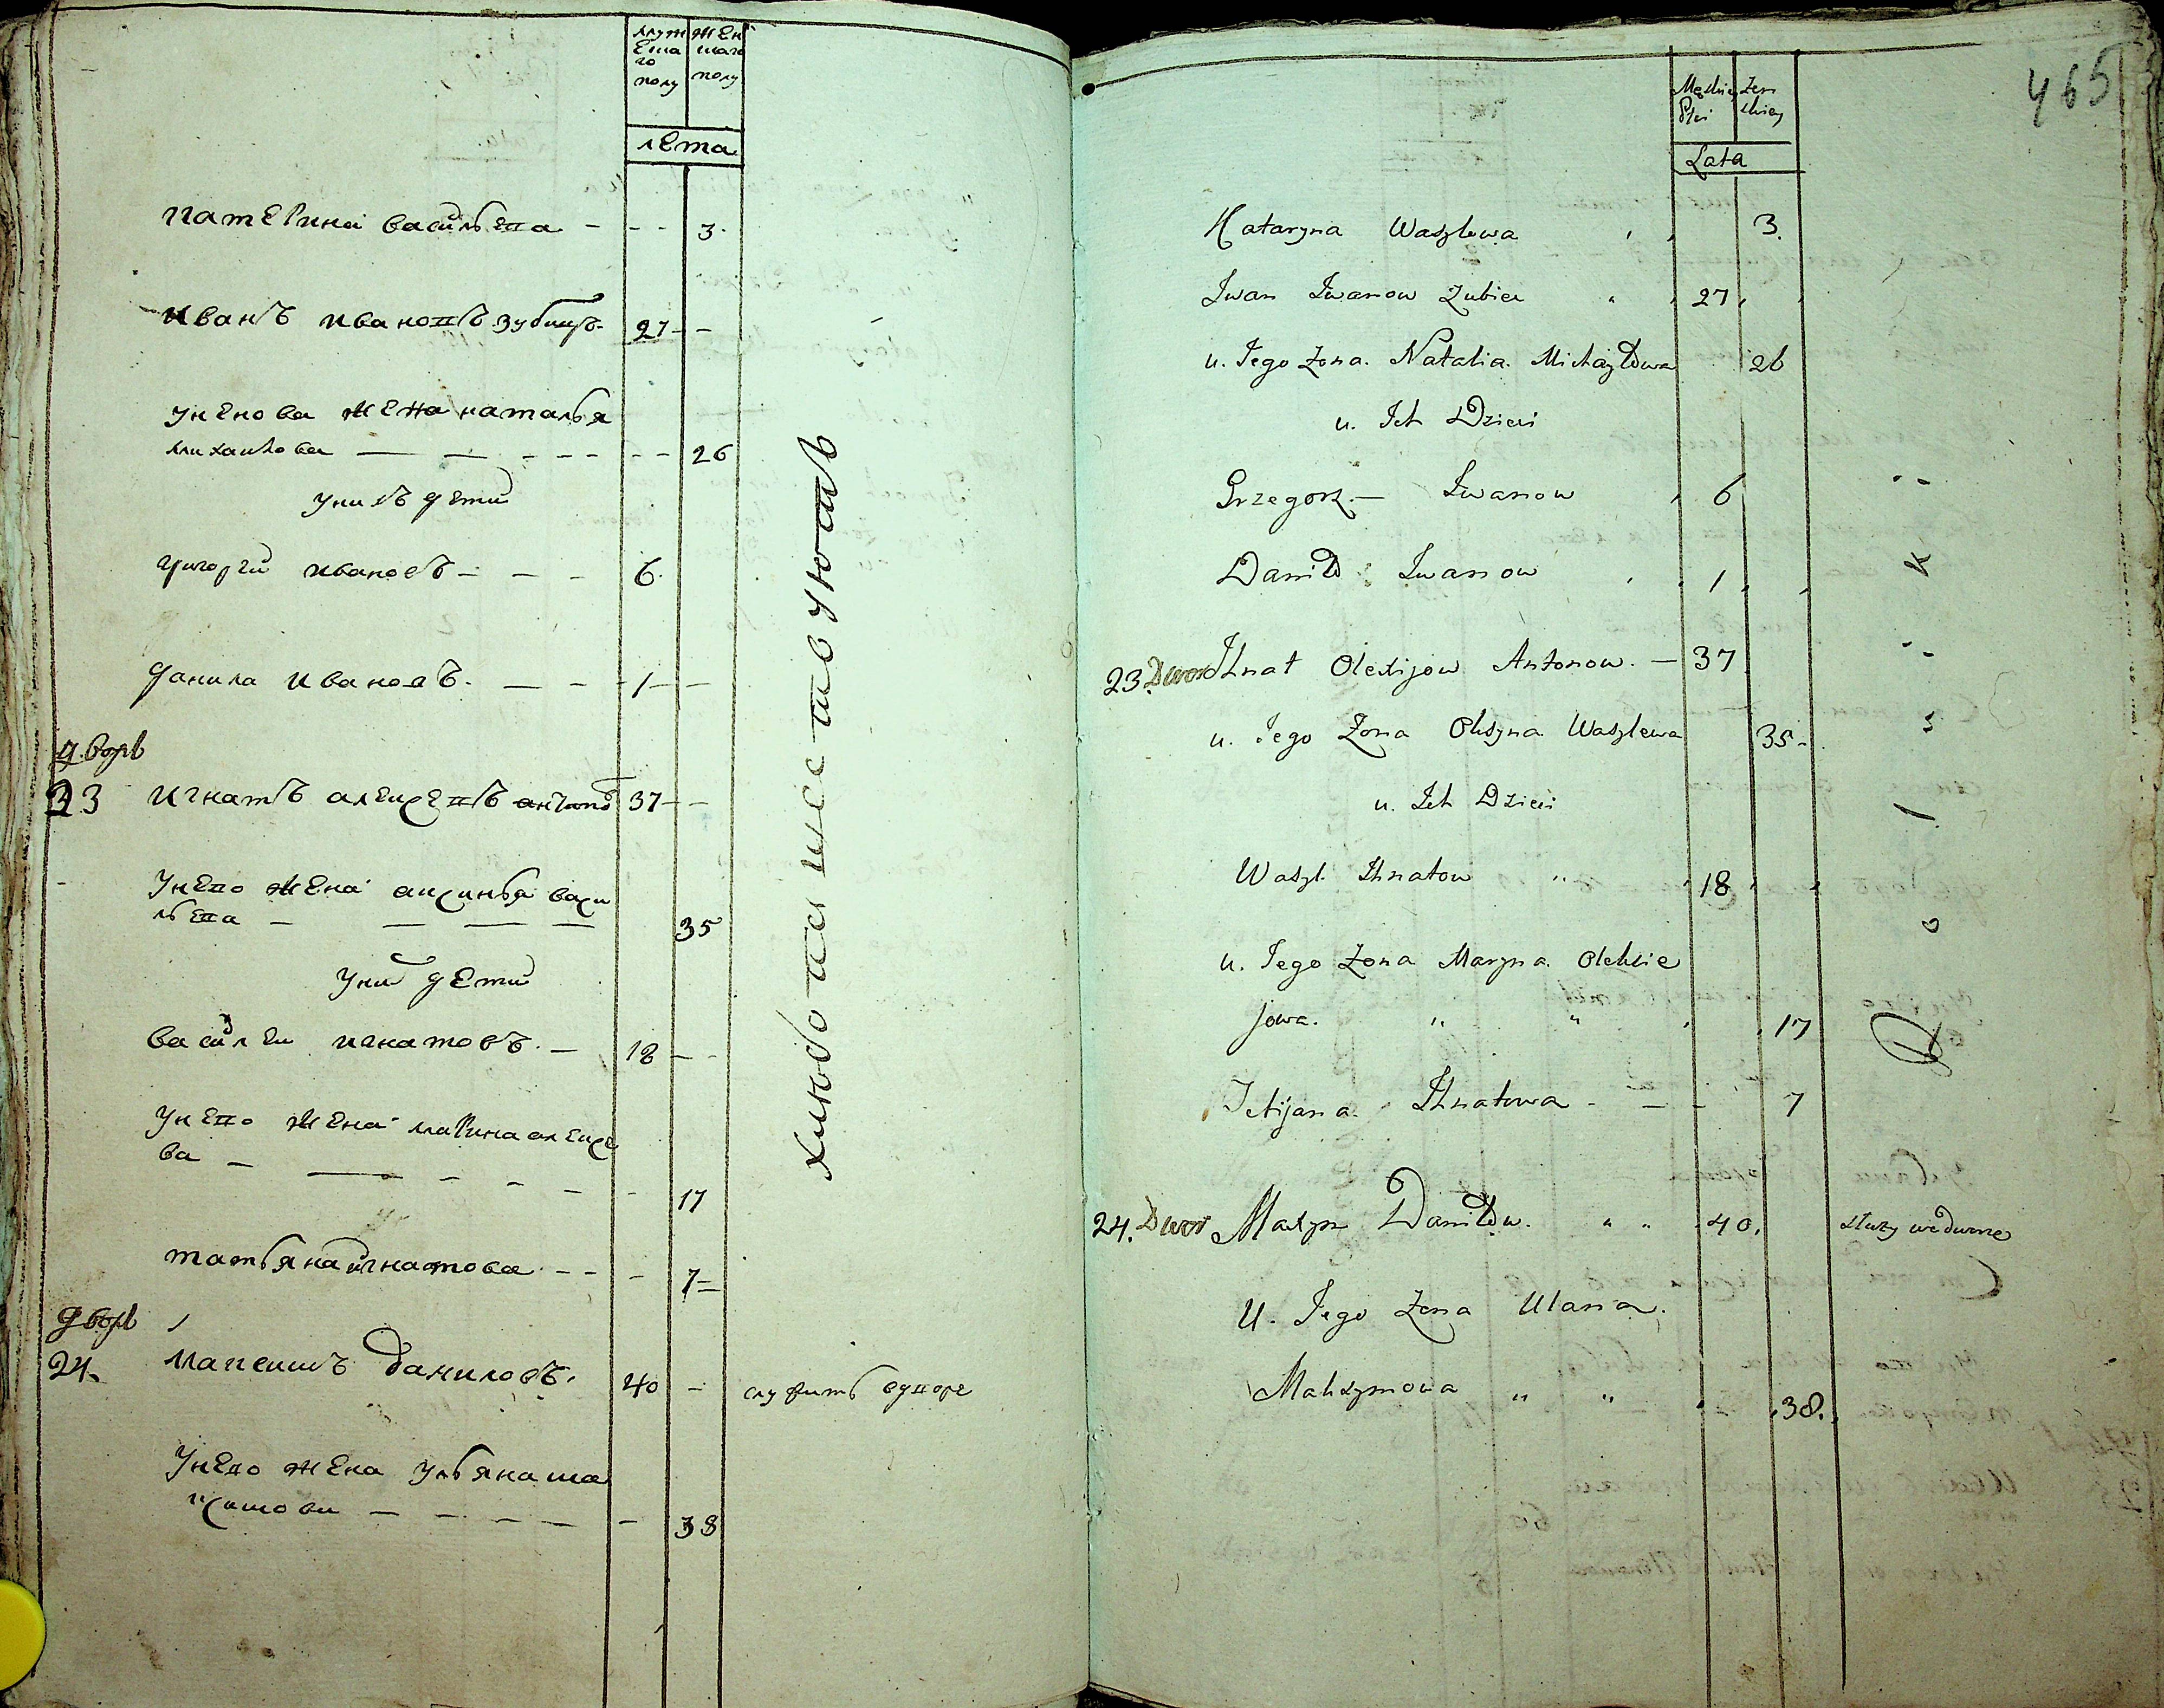 муже
ска
го
полу
жен
скаго
полу
лета
катерина васильева - - - 3.
иванъ ивановъ зубицъ - 27 - -
у него жена наталья
михаилова - - - - - - 26
у нихъ дети
григорей ивановъ - - - 6.
данила ивановъ. - - - 1 - -
дворъ
23 игнатъ алексеевъ антоно 37 - -
у него жена аксинья васи
льева - - - - 35
у ни дети
василеи игнатовъ. - 18 - -
у него жена марина алексе
ва - - - - - - 17
татьяна игнатова - - - 7 =
дворъ
24. максимъ даниловъ. 40 - служитъ в дворе
у него жена ульяна ма
ксимова - - - - - 38
хлебопашествуютъ
465
Męskiey
Płci
Żen
skiey
Lata
Kataryna Wasylewa 3.
Iwan Iwanow Zubiec 27
u. Jego Żona. Natalia. Michayłowa 26
u. Ich Dzieci
Grzegorz. - Iwanow 6
Daniło Iwanow 1
23. Dwor Ihnat Olexijow Antonow. - 37
u. Jego Żona Oksyna Wasylewa 35 -
u. Ich Dzieci
Wasyl. Ihnatow 18
u. Jego Żona Maryna. Oleksie
jowa. 17
Tetijana. Ihnatowa - - - 7
24. Dwor Maxym Daniłow. 40. służy we dworze
U. Jego Żona Ulana.
Maksymowa 38.